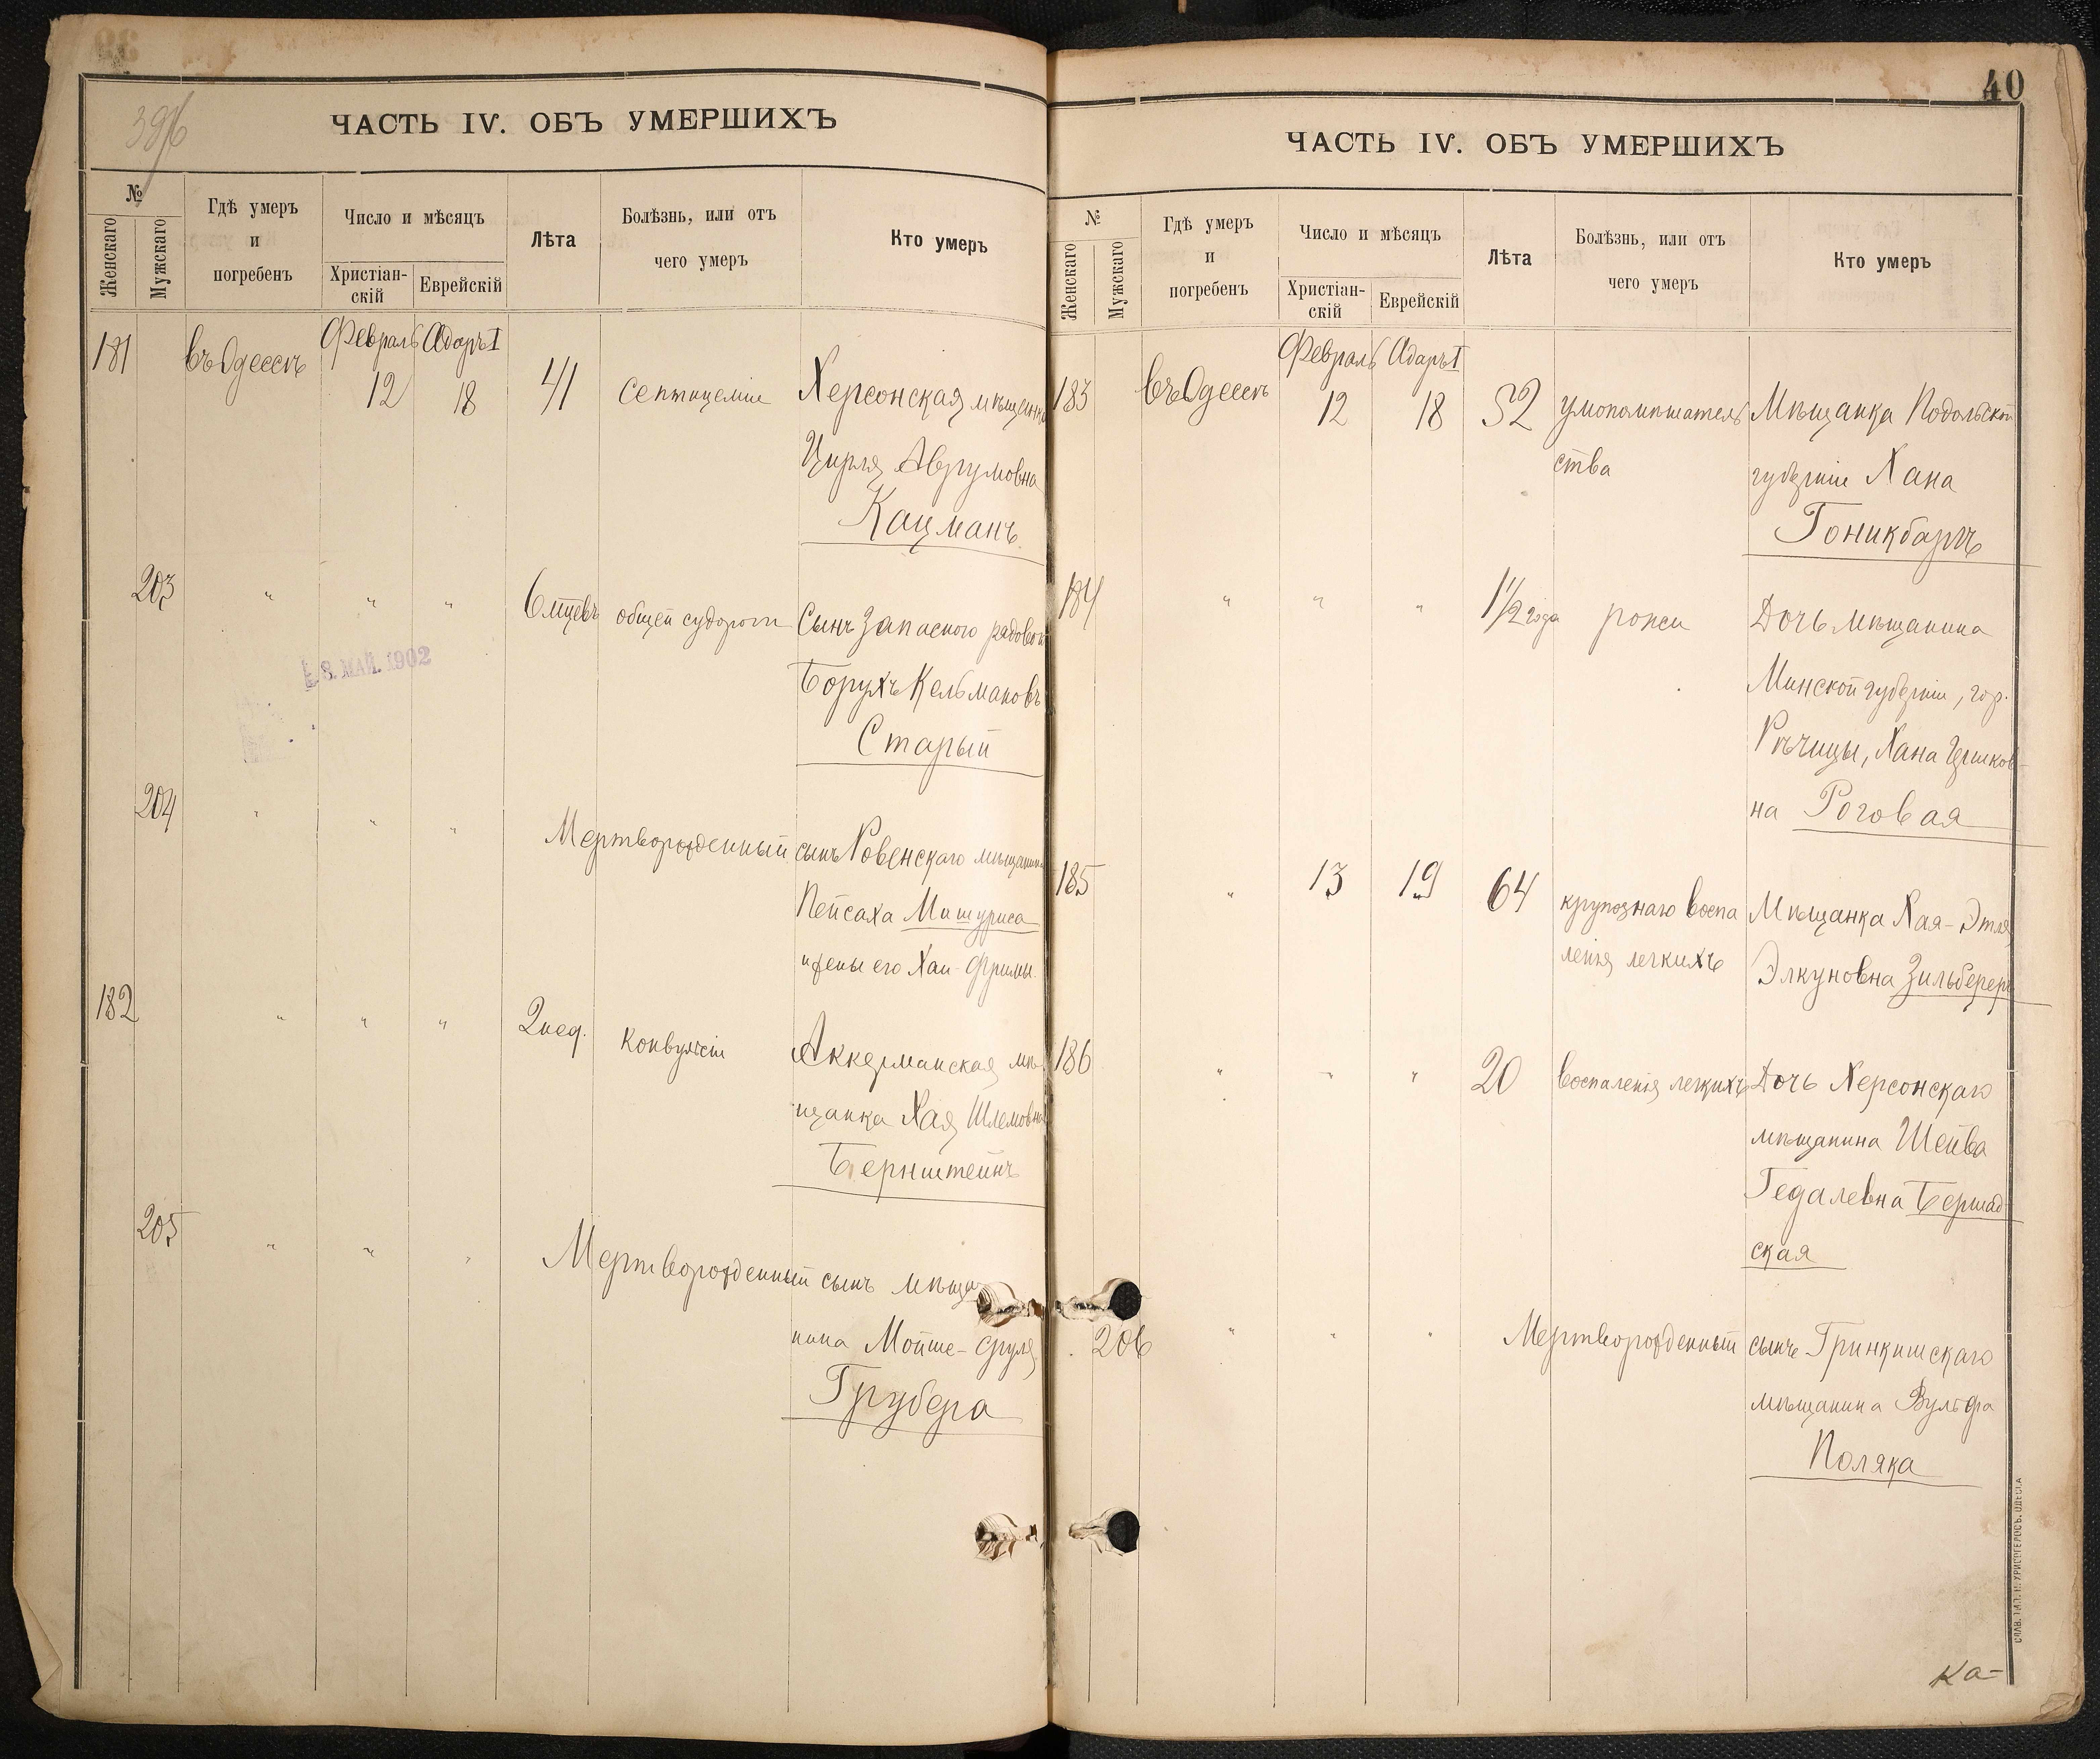 396
ЧАСТЬ IV. ОБЪ УМЕРШИХЪ
№
Женскаго
Мужскаго
Гдѣ умеръ
и
погребенъ
Число и мѣсяцъ
Христіан-
скій
Еврейскій
Лѣта
Болѣзнь, или отъ
чего умеръ
Кто умеръ
181
въ Одессѣ
Февраль Адаръ I
12 18
41
септицеміи
Херсонская мѣщанка
Цирля Аврумовна
Кацманъ
203
" " "
6 мцевъ
общей судороги
Сынъ запасного рядового
Борухъ Кельмановъ
Старый
8. МАЙ. 1902
204
" " "
Мертворожденный сынъ Ровенскаго мѣщанина
Пейсаха Мишуриса
и жены его Хаи-Фримы
182
" " "
2 нед.
Конвульсіи
Аккерманская мѣ-
щанка Хая Шлемовна
Бернштейнъ
205
" " "
Мертворожденный сынъ мѣща-
нина Мойше-Сруля
Грубера
40
ЧАСТЬ IV. ОБЪ УМЕРШИХЪ
№
Женскаго
Мужскаго
Гдѣ умеръ
и
погребенъ
Число и мѣсяцъ
Христіан-
скій
Еврейскій
Лѣта
Болѣзнь, или отъ
чего умеръ
Кто умеръ
183
въ Одессѣ
Февраль Адаръ I
12 18
52
умопомѣшатель
ства
Мѣщанка Подольской
губерніи Хана
Гоникбаргъ
184
" " "
1 1/2 года
рожи
Дочь мѣщанина
Минской губерніи, гор.
Рѣчицы, Хана Гершков-
на Роговая
185
"
13 19
64
крупознаго воспа
ленія легкихъ
Мѣщанка Хая-Этля
Элкуновна Зильберергъ
186
" " "
20
воспаленія легкихъ
Дочь Херсонскаго
мѣщанина Шейва
Гедалевна Бершад-
ская
206
" " "
Мертворожденный сынъ Гринкишскаго
мѣщанина Вульфа
Поляка
СЛАВ. ТИП. Н. ХРИСОГЕЛОСЪ. ОДЕССА
Ка-